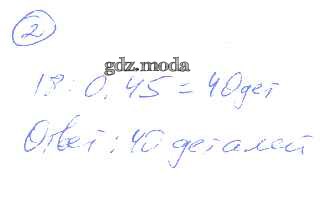 2
gdz.moda
18 : 0,45 = 40 дет
Ответ: 40 деталей